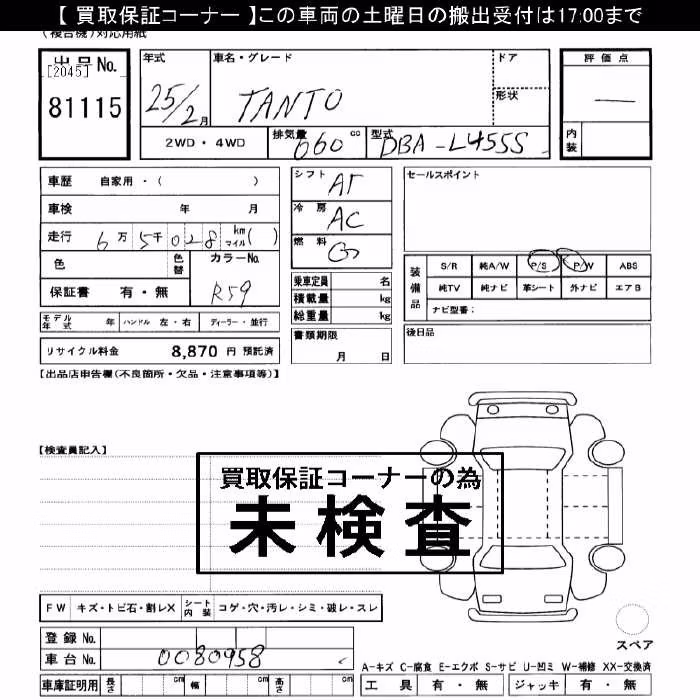 【 買取保証コーナー 】この車両の土曜日の搬出受付は17:00まで
(複合機)対応用紙
出品No.
[2045]
81115
年式
25/2月
車名・グレード
TANTO
ドア
形状
評価点
—
内装
2WD・4WD
排気量 660 cc
型式 DBA-L455S
車歴 自家用・( )
車検 年 月
走行 6万5千028 km マイル( )
色 色替 カラーNo.
R59
保証書 有・無
モデル年式 年 ハンドル 左・右 ディーラー・並行
リサイクル料金 8,870 円 預託済
シフト AT
冷房 AC
燃料 G
乗車定員 名
積載量 kg
総重量 kg
書類期限
月 日
セールスポイント
装備品
S/R 純A/W P/S P/W ABS
純TV 純ナビ 革シート 外ナビ エアB
ナビ型番：
後日品
【出品店申告欄(不良箇所・欠品・注意事項等)】
【検査員記入】
買取保証コーナーの為
未検査
FW キズ・トビ石・割レX シート内装 コゲ・穴・汚レ・シミ・破レ・スレ
登録No.
車台No. 0080958
スペア
A-キズ C-腐食 E-エクボ S-サビ U-凹ミ W-補修 XX-交換済
車庫証明用 長さ cm 幅 cm 高さ cm
工具 有・無 ジャッキ 有・無